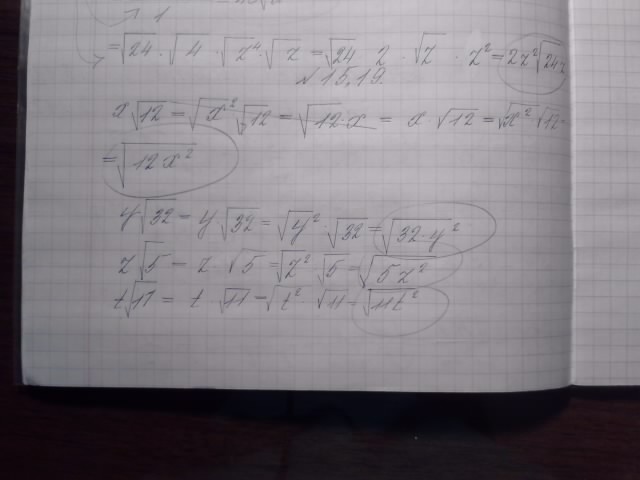 1
= √24 · √4 · √z⁴ · √z = √24 · 2 · √z · z² = 2z²√24z
№ 15,19.
x√12 = √x² √12 = √12·x = x·√12 = √x² √12 =
= √12x²
y√32 = y√32 = √y² · √32 = √32·y²
z√5 = z·√5 = √z² √5 = √5z²
t√11 = t √11 = √t² √11 = √11t²